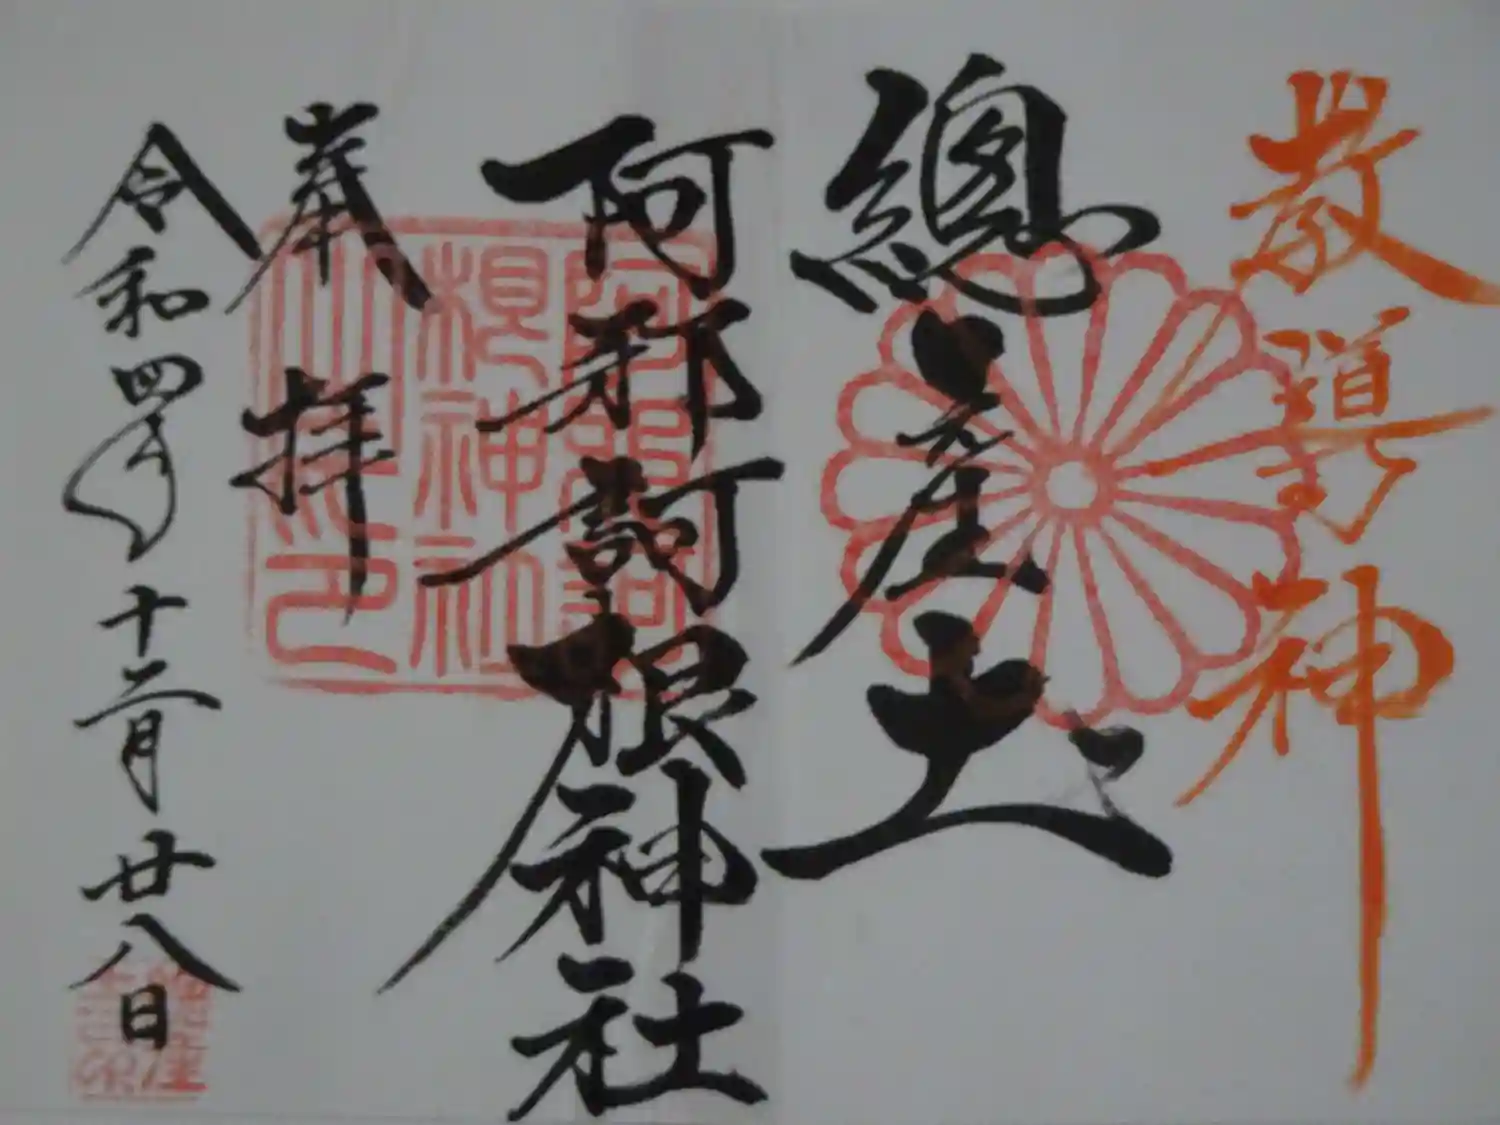 教導神
總産土
阿邪訶根神社
奉拝
令和四年十二月廿八日
阿邪訶
根神社
之印